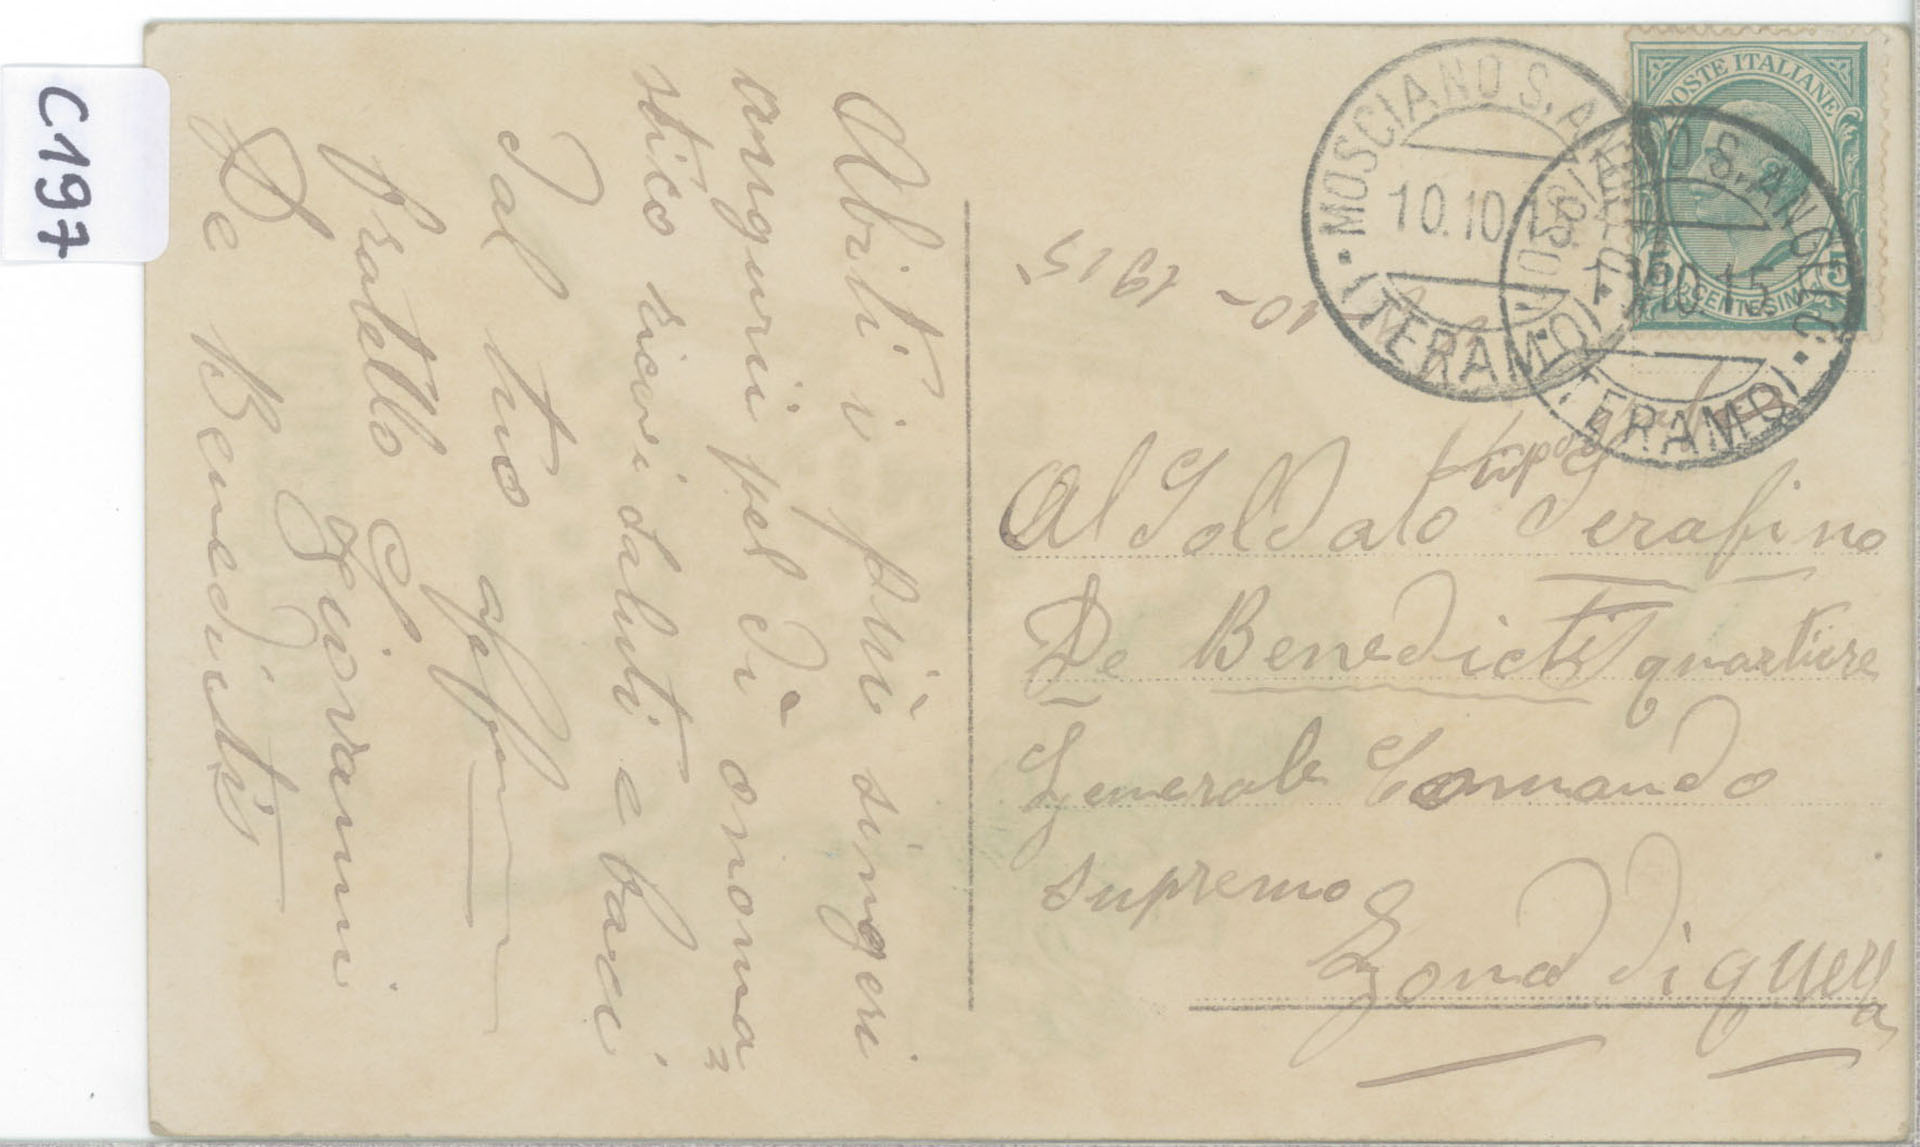 C197
Abiti i più singeri
anuguri pel dì onoma=
stico ricevi saluti e baci
dal tuo aff
fratello Giovanni
De Benedictis
POSTE ITALIANE
5 CENTESIMI 5
MOSCIANO S. ANGELO
10.10.15
(TERAMO)
MOSCIANO S. ANGELO
10.10.15
(TERAMO)
10-1915
Al Soldato Serafino
De Benedictis quartiere
Generale Comando
supremo
Zona di guerra